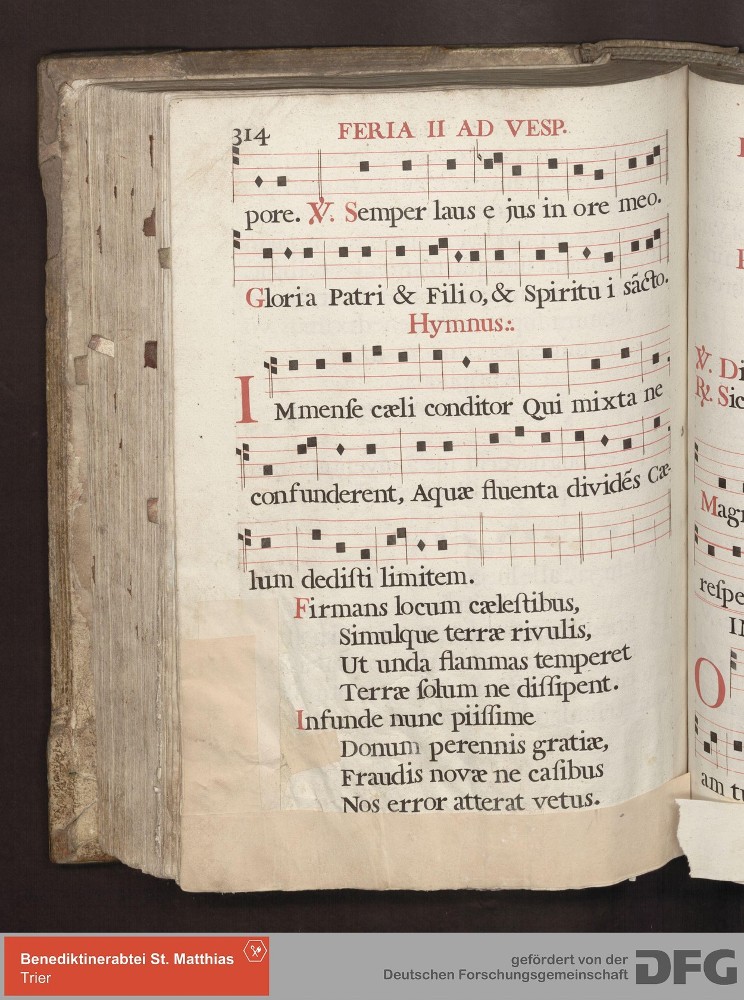 314
FERIA II AD VESP.
pore. ℣. Semper laus e jus in ore meo.
Gloria Patri & Filio, & Spiritu i sãcto.
Hymnus:.
IMmenſe cæli conditor Qui mixta ne
confunderent, Aquæ fluenta dividẽs Cæ-
lum dediſti limitem.
Firmans locum cæleſtibus,
Simulque terræ rivulis,
Ut unda flammas temperet
Terræ ſolum ne diſſipent.
Infunde nunc piiſſime
Donum perennis gratiæ,
Fraudis novæ ne caſibus
Nos error atterat vetus.
℣. Di
℟. Sic
Magn
reſpe
O
am tu
Benediktinerabtei St. Matthias
Trier
gefördert von der
Deutschen Forschungsgemeinschaft
DFG